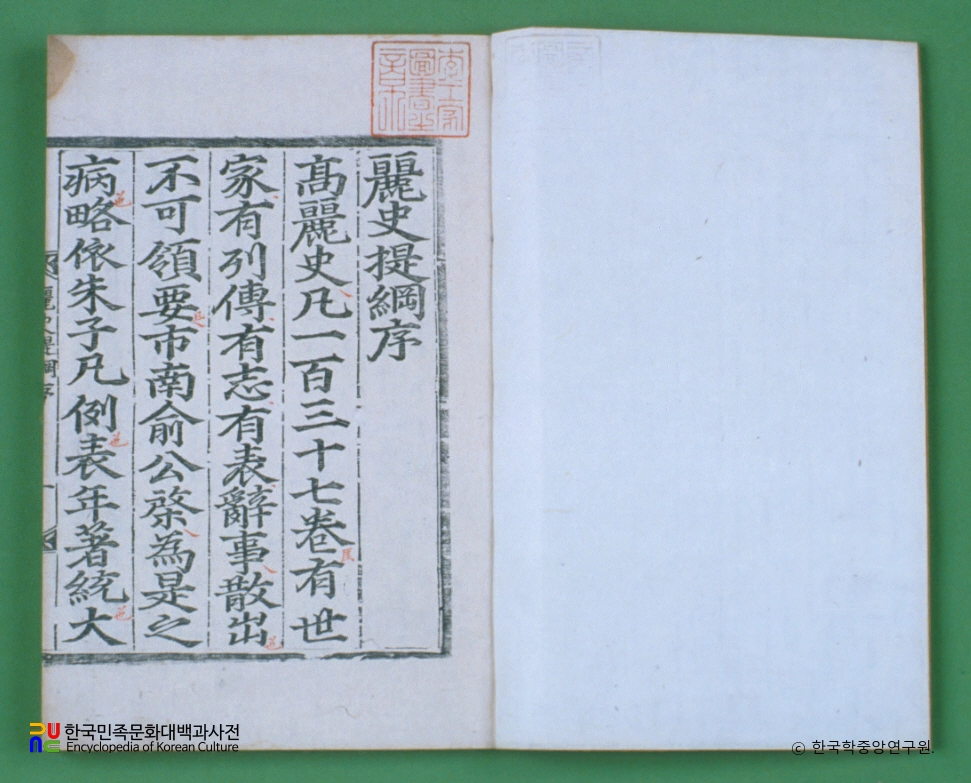 麗史提綱序
高麗史凡一百三十七卷有世
家有列傳有志有表辭事散出
不可領要市南俞公棨為是之
病略依朱子凡例表年著統大
한국민족문화대백과사전
Encyclopedia of Korean Culture
© 한국학중앙연구원.